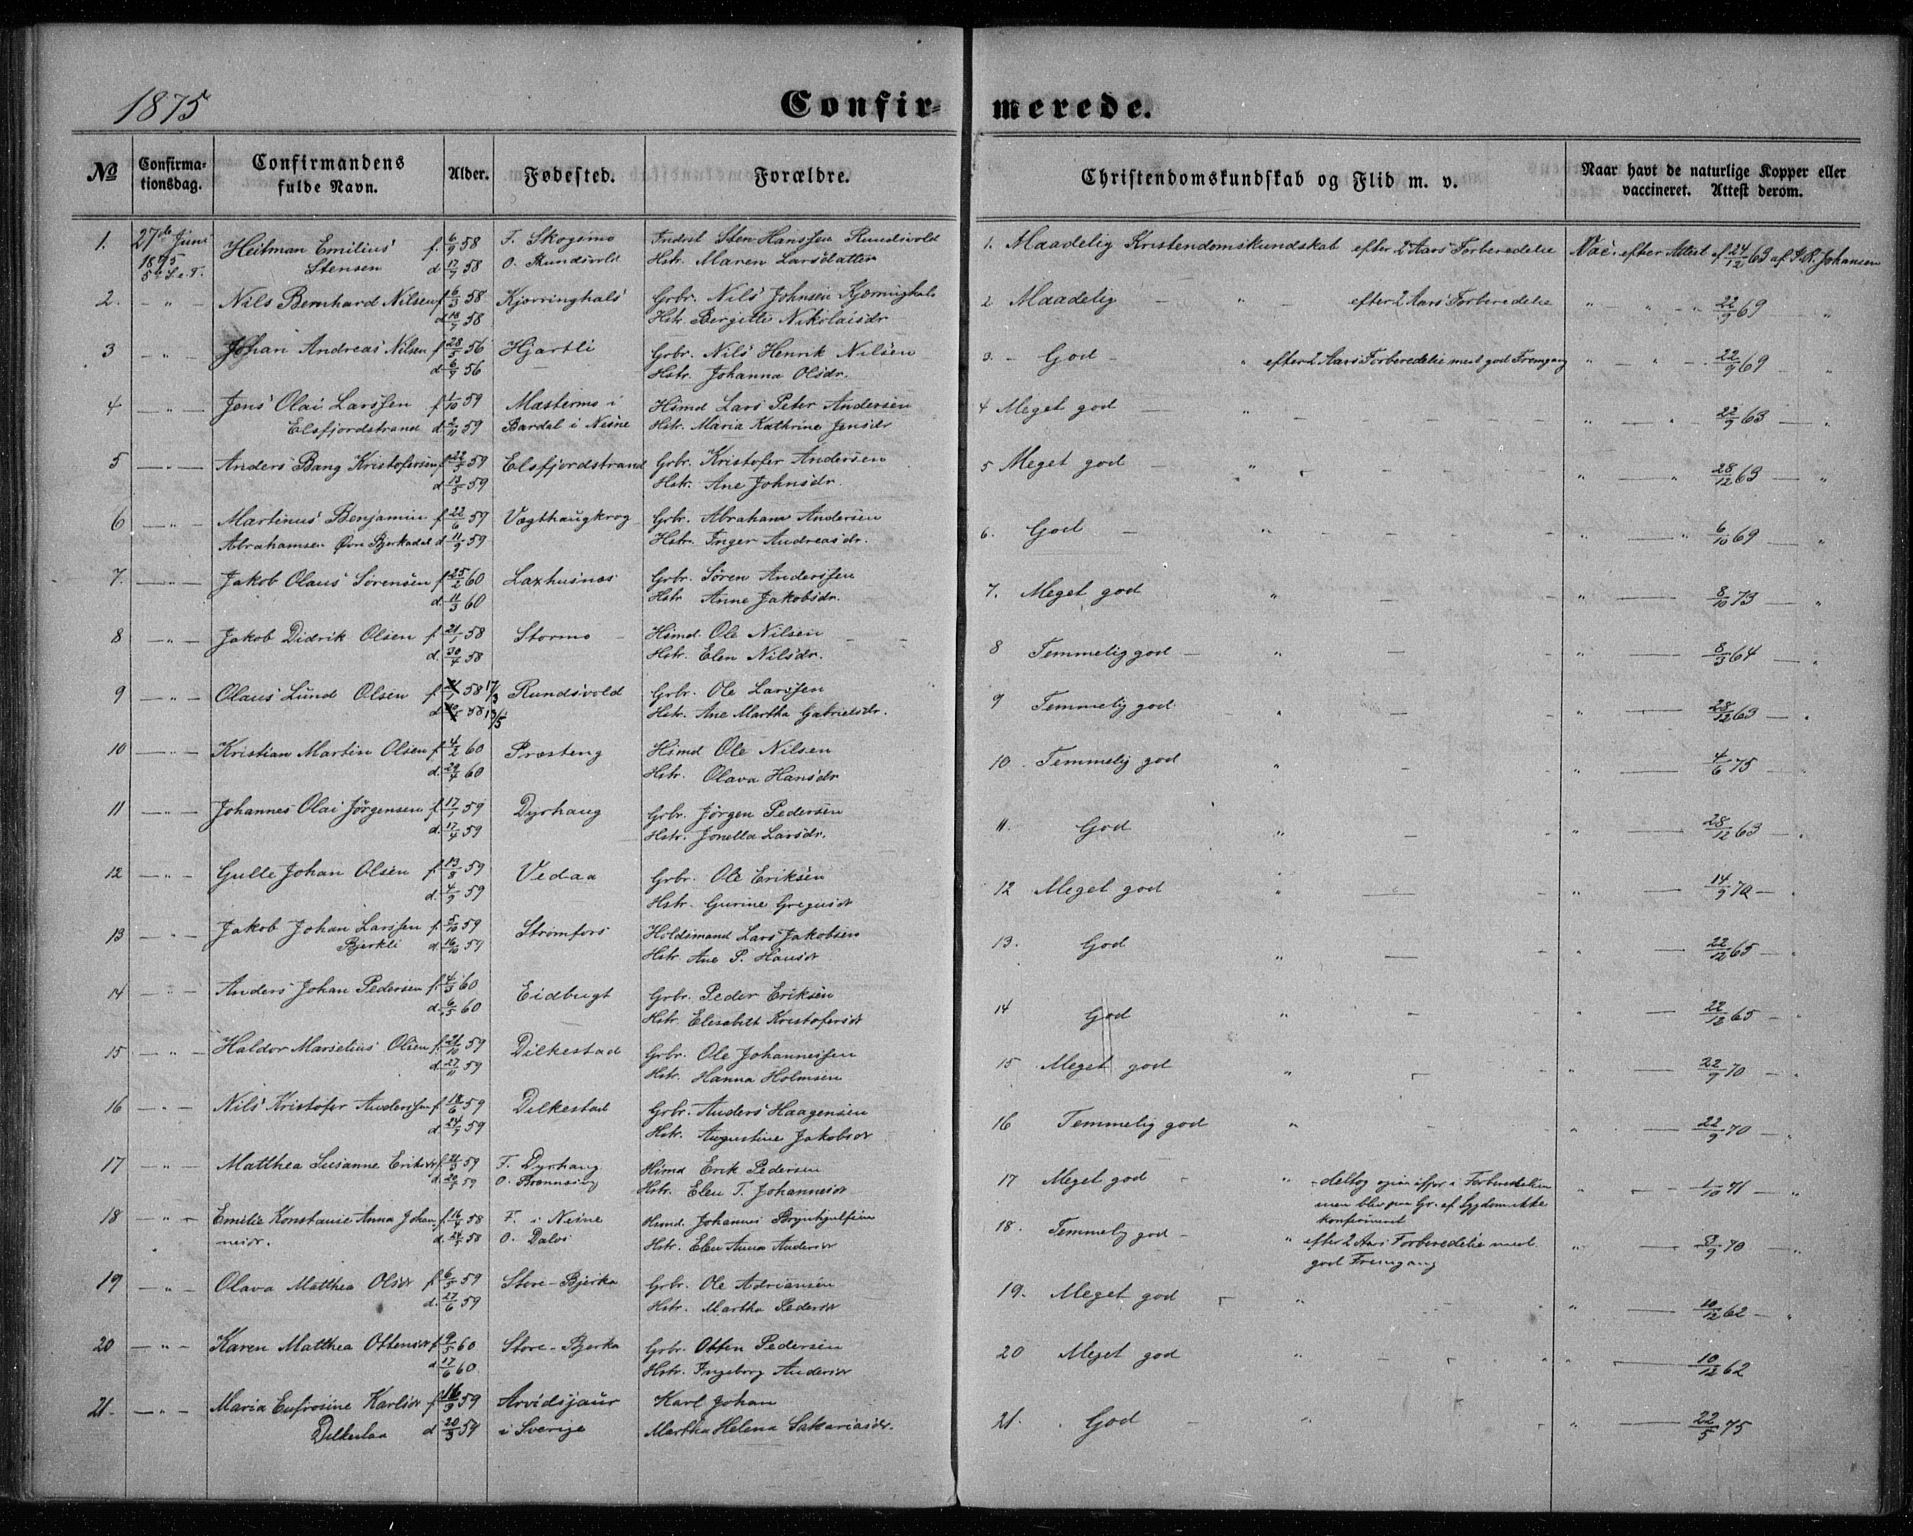 1875
Confirmerede.
No
Confirmationsdag.
Confirmandens fulde Navn.
Alder.
Fødested.
Forældre.
Christendomskundskab og Flid m. v.
Naar havt de naturlige Kopper eller vaccineret. Attest derom.
1. 27de Juni Heitman Emilius f. 6/9 58 F. Skogsmo Inderst Sten Hanssen Rundsvold 1. Maadelig Kristendomskundskab efter 2 Aars Forberedelse Vac. efter Attest af 24/12 63 af P. R. Johansen
1875 5te S. e. T. Stensen d 17/9 58 O. Rundsvold Hstr. Maren Larsdatter
2. - " - Nils Bernhard Nilsen f 6/3 58 Kjærringhals Grbr. Nils Johnsen Kjærringhals 2 Maadelig - " efter 2 Aars Forberedelse " " - " - 22/9 69 "
d 18/7 58 Hstr. Bergitte Nikolaisdr
3 - " - Johan Andreas Nilsen f 28/5 56 Hjartli Grbr. Nils Henrik Nilsen 3. - God - " efter 2 Aars Forberedelse med god Fremgang " - " - 22/9 69 "
d 6/7 56 Hstr. Johanna Olsdr.
4 - " - Jens Olai Larssen f 1/10 59 Mastermo i Hsmd Lars Peter Andersen 4 Meget god - " " 22/9 63 "
Elsfjordstrand d 2/11 59 Bardal i Nesne Hstr. Maria Kathrine Jensdr
5 - " - Anders Bang Kristofersen f 22/3 59 Elsfjordstrand Grbr. Kristofer Andersen 5 Meget god - " " - " 28/12 63 - "
d 13/5 59 Hstr. Ane Johnsdr.
6 - " - Martinus Benjamin f 22/6 59 Vægthaugkrog Grbr. Abraham Andersen 6. God - " " 6/10 69 "
Abrahamsen Øvre Bjerkadal d 11/9 59 Hstr. Inger Andreasdr.
7. - " - Jakob Olaus Sørensen f 25/2 60 Laxhusnæs Grbr. Søren Anderssen 7. Meget god " - " - 8/10 73 - "
d 11/3 60 Hstr Anne Jakobsdr.
8 - " - Jakob Didrik Olsen f 21/1 58 Stormo Hsmd. Ole Nilsen 8 Temmelig god - " - " - 8/3 64 - "
d. 30/4 58 Hstr. Elen Nilsdr.
9 - " - Olaus Lund Olsen f. 58 17/3 Rundsvold Grbr. Ole Larssen 9 Temmelig god " - " - 28/12 63 - "
d 58 13/5 Hstr. Ane Martha Gabrielsdr.
10 - " - Kristian Martin Olsen f. 4/2 60 Præsteng Hsmd Ole Nilsen 10 Temmelig god " - " - 4/6 75 - "
d. 29/4 60 Hstr. Olava Hansdr
11 - " - Johannes Olai Jørgensen f. 17/1 59 Dyrhaug Grbr. Jørgen Pedersen 11. God " - " - 28/12 63 - "
d. 17/4 59 Hstr. Jonetta Larsdr.
12 - " - Gulle Johan Olsen f. 13/8 59 Vedaa Grbr. Ole Eriksen 12 Meget god " - " - 14/9 70 - "
d. 4/9 59 Hstr. Gurine Gregusdr
13 - " - Jakob Johan Larssen f. 5/10 59 Strømfors Holdsmand Lars Jakobsen 13. God " - " - 22/12 65 - "
Bjerkli d. 16/10 59 Hstr Ane P. Hansdr
14 - " - Anders Johan Pedersen f. 4/3 60 Eidbugt Grbr. Peder Eriksen 14 God " - " - 22/12 65 - "
d. 6/5 60 Hstr. Elisabeth Kristofersdr
15 - " - Haldor Marselius Olsen f. 21/10 59 Dilkestad Grbr. Ole Johannessen 15 Meget god " - " - 22/9 70 - "
d. 27/11 59 Hstr. Hanna Holmsen
16 - " - Nils Kristofer Anderssen f 18/6 59 Dilkestad Grbr. Anders Haagensen 16 Temmelig god " - " - 22/9 70 - "
d. 24/7 59 Hstr. Augustine Jakobsdr
17 - " - Matthea Susanne Eriksdr f. 21/3 59 F. Dyrhaug Hsmd Erik Pedersen 17 Meget god - " - deltog ogsaa ifjor i Forberedelsen " - 1/10 71 - "
d. 59 O. Brænnseng Hstr. Elen T. Johannesdr men blev paa Gr. af Sygdom ikke
konfirmeret
18 - " - Emelie Konstanse Anna Johan- f. 16/4 58 F. i Nesne Hsmd. Johannes Brynhjulfsen 18. Temmelig god - " efter 2 Aars Forberedelse med " - 70 - "
nesdr. d. 58 O. Dalos Hstr. Elen Anna Andersdr god Fremgang
19 - " - Olava Matthea Olsdr f 6/5 59 Store-Bjerka Grbr. Ole Adriansen 19. Meget god - " " - 10/12 62 - "
d. 27/6 59 Hstr. Martha Pedersdr
20 - " - Karen Matthea Ottensdr f 9/5 60 Store-Bjerka Grbr. Otten Pedersen 20 Meget god " - " - 10/12 62
d 17/6 60 Hstr. Ingeborg Andersdr
21. - " - Maria Eufrosine Karlsdr f 16/3 59 Arvidsjaur Karl Johan 21. God - " " - 22/5 75
Dilkestad d 20/3 59 i Sverige Martha Helena Sakariasdr.